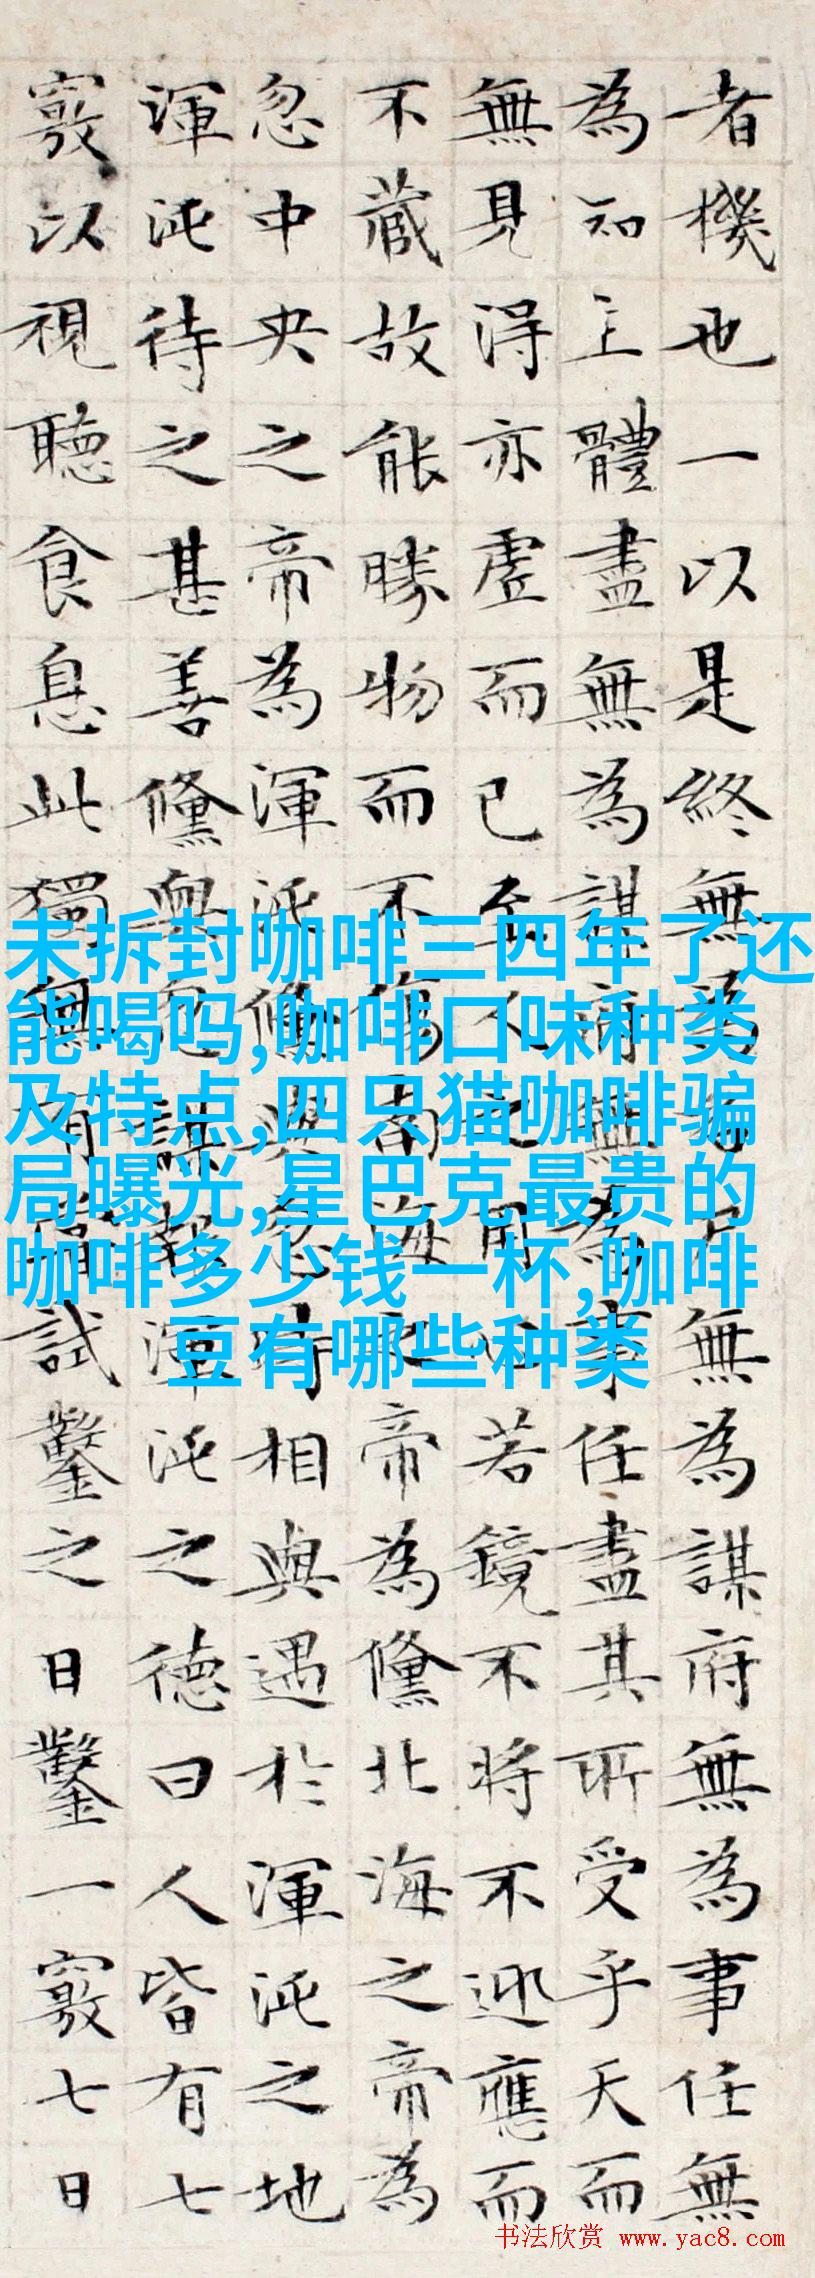 者機也一以是終無為名尸無為謀府無為事任無
為知主體盡無為謀府無為事任盡其所受乎天而
無見得亦虛而已至人之用心若鏡不將不迎應而
不藏故能勝物而不傷南海之帝為儵北海之帝為
忽中央之帝為渾沌儵與忽時相與遇於渾沌之地
渾沌待之甚善儵與忽謀報渾沌之德曰人皆有七
竅以視聽食息此獨無有嘗試鑿之日鑿一竅七日
未拆封咖啡三四年了还
能喝吗,咖啡口味种类
及特点,四只猫咖啡骗
局曝光,星巴克最贵的
咖啡多少钱一杯,咖啡
豆有哪些种类
书法欣赏 www.yac8.com